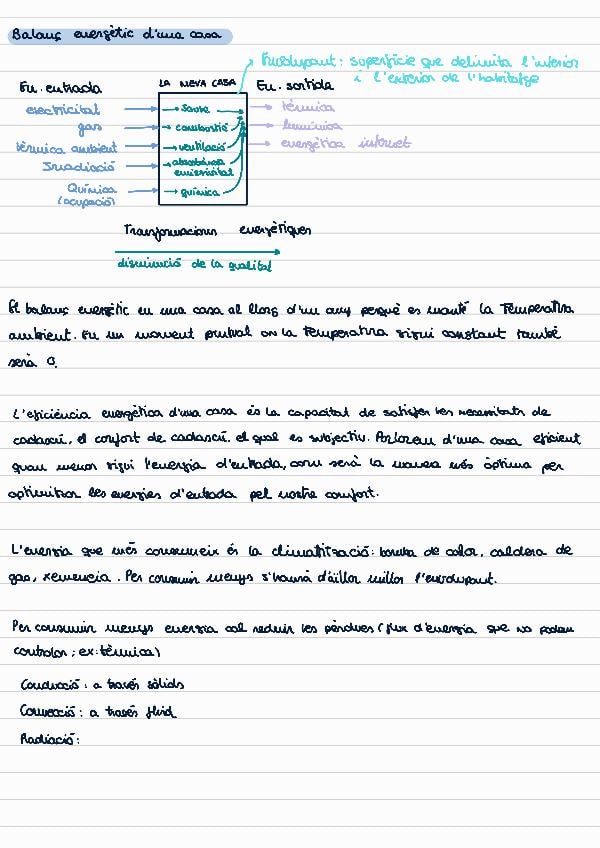 Balanç energètic d'una casa
Envolupant: superfície que delimita l'interior
i l'exterior de l'habitatge
En. entrada
LA MEVA CASA
En. sortida
electricitat
gas
tèrmica ambient
Irradiació
Química
(ocupació)
combustió
ventilació
absortància
emissivitat
química
tèrmica
lumínica
energètica internet
Transformacions energètiques
disminució de la qualitat
El balanç energètic en una casa al llarg d'un any perquè es manté la Temperatura
ambient. En un moment puntual on la Temperatura sigui constant també
serà 0.
L'eficiència energètica d'una casa és la capacitat de satisfer les necessitats de
cadascú, el confort de cadascú, el qual es subjectiu. Parlarem d'una casa eficient
quan menor sigui l'energia d'entrada, com serà la manera més òptima per
optimitzar les energies d'entrada pel nostre confort.
L'energia que més consumeix és la climatització: bomba de calor, caldera de
gas, xemeneia. Per consumir menys s'haurà d'aïllar millor l'envolupant.
Per consumir menys energia cal reduir les pèrdues (flux d'energia que no podem
controlar; ex: tèrmica)
Conducció: a través sòlids
Convecció: a través fluid
Radiació: